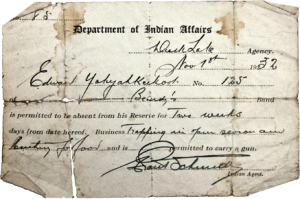 Department of Indian Affairs
Duck Lake Agency.
Nov 1st 1932
Edward Yahyahkeekoot No. 125
Beardy's Band
is permitted to be absent from his Reserve for Two weeks
days from date hereof. Business Trapping in open season and
hunting for food and is permitted to carry a gun.
Indian Agent.